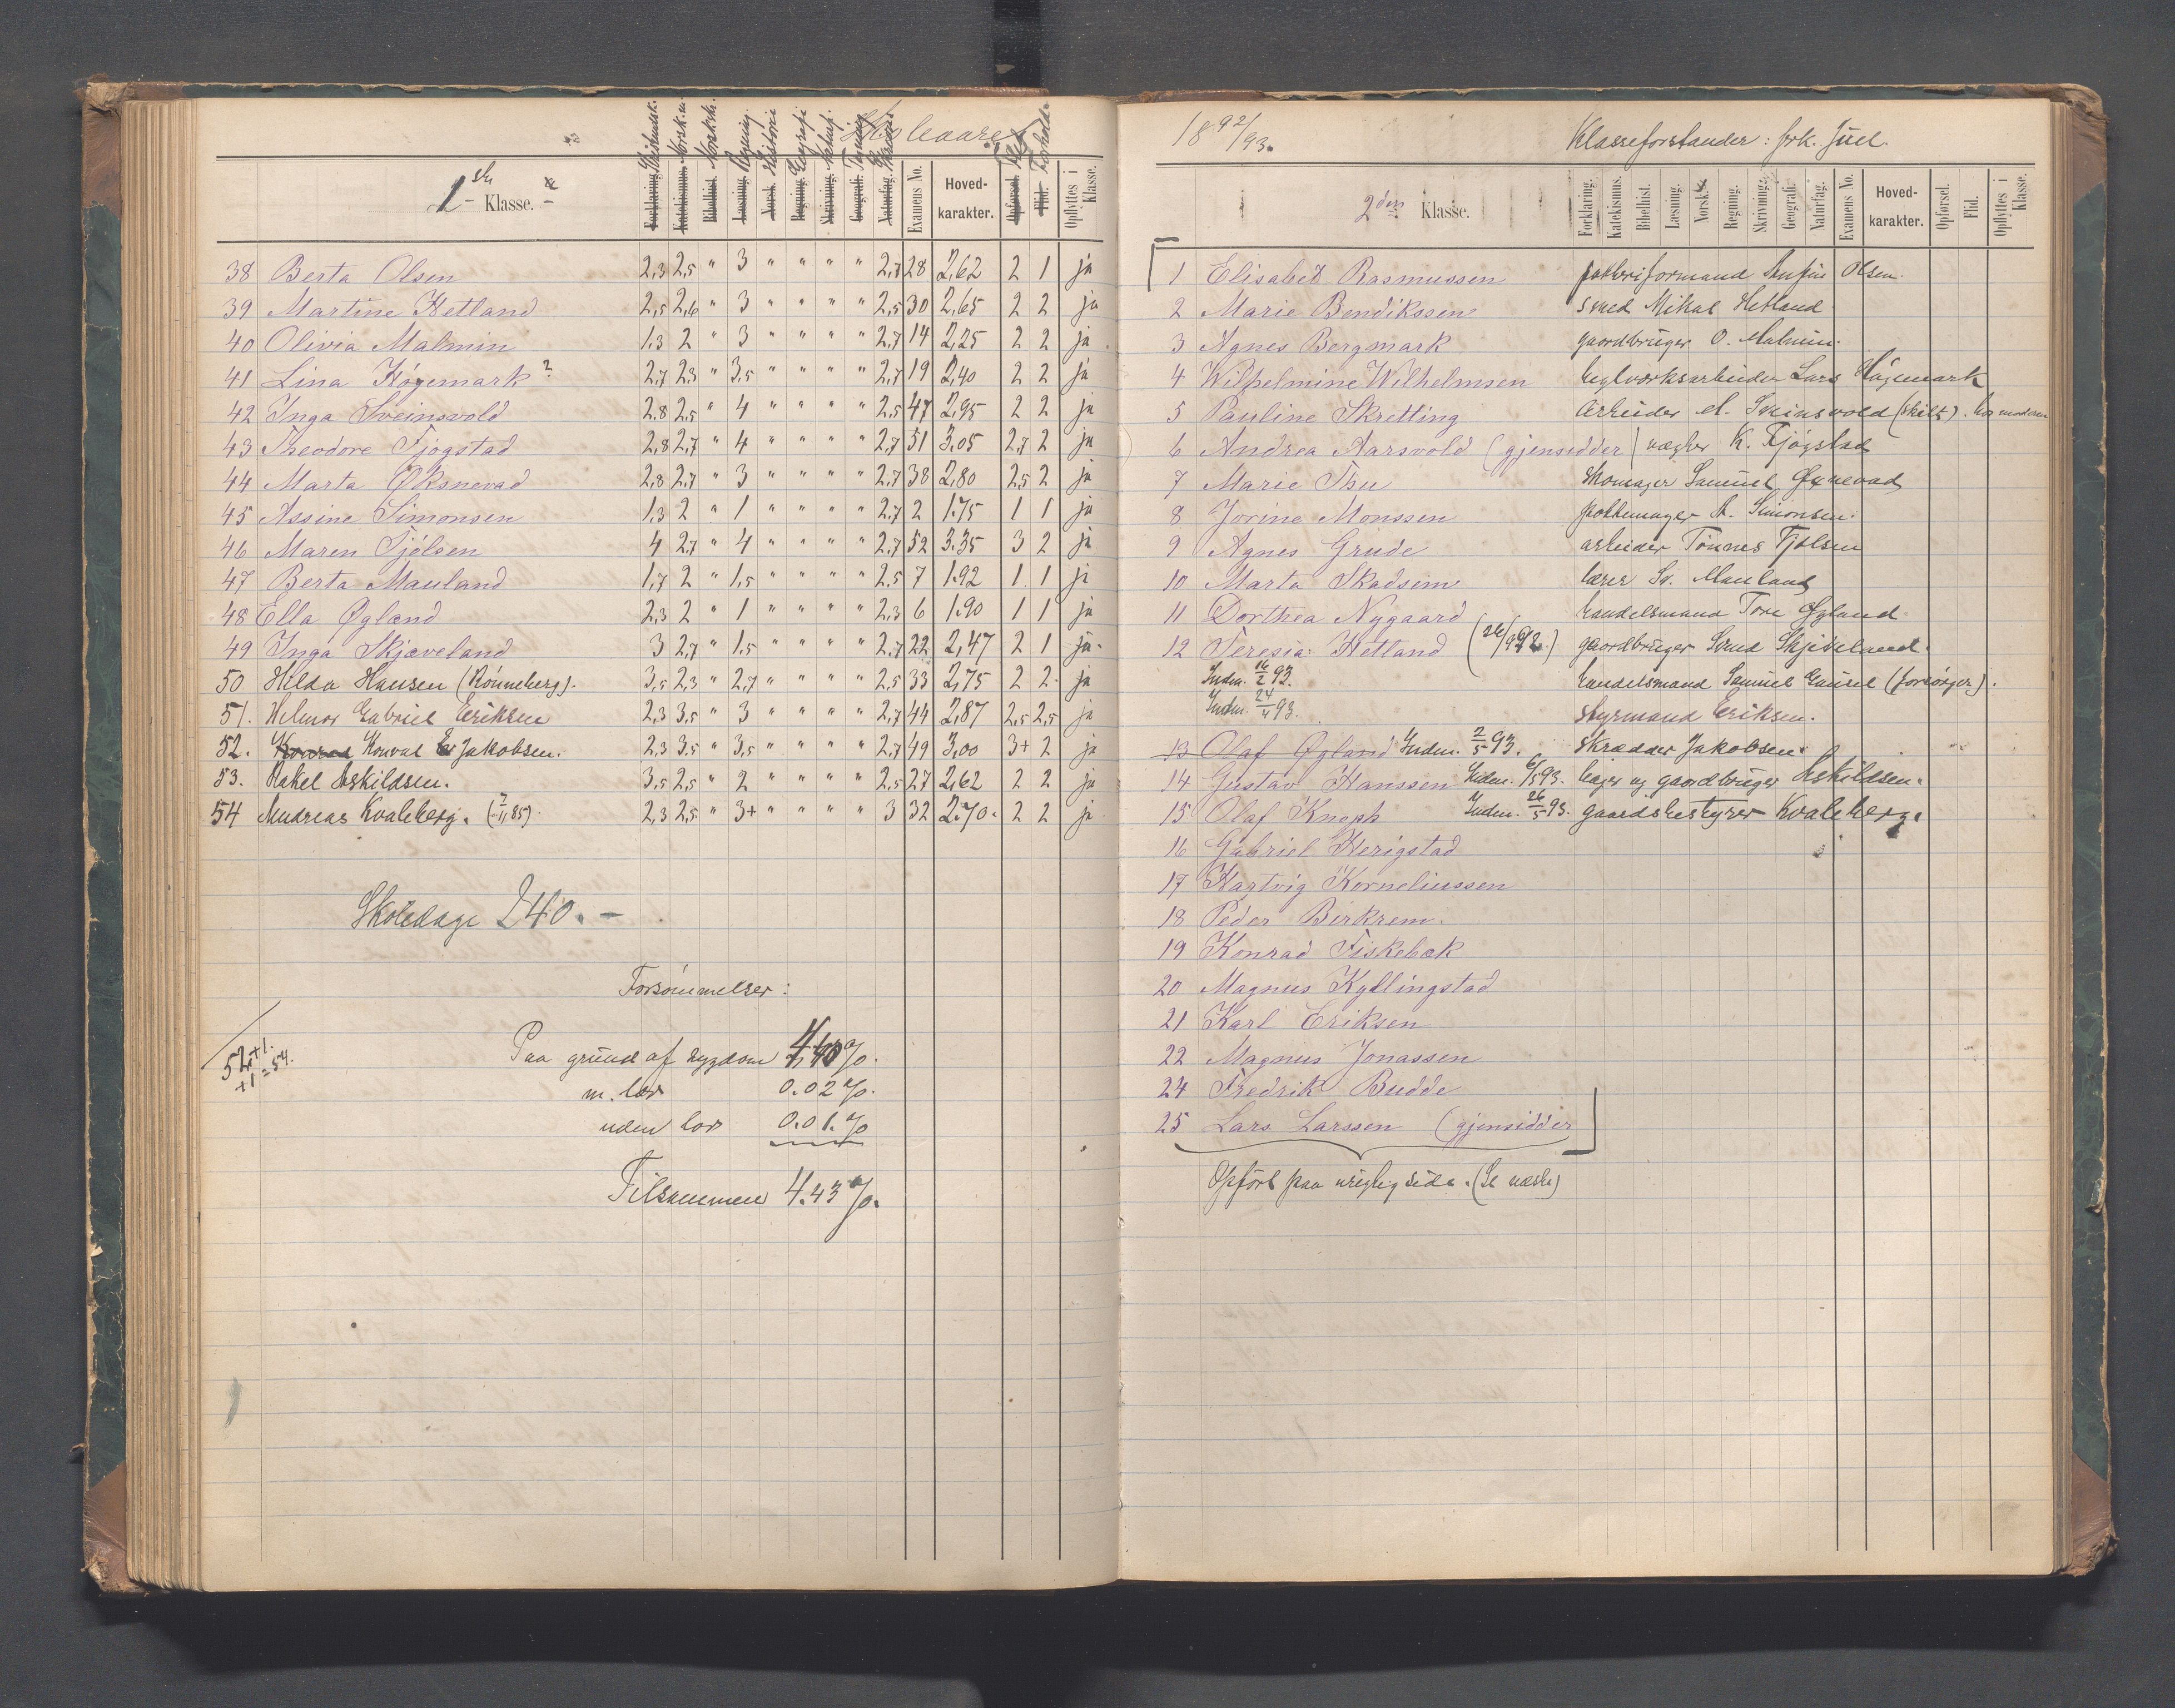 Skoleaaret
1ste Klasse.
Kristendomsk. Norsk m. Norsk sk. Regning. Historie Geografi Naturf. Tegning Skrivning Flid Forhold.
Forklaring. Katekismus. Bibelhist. Læsning. Norsk. Regning. Skrivning. Geografi. Naturfag. Examens No. Hoved-karakter. Opførsel. Flid. Opflyttes i Klasse.
38 Berta Olsen 2,3 2,5 " 3 " " " " 2,7 28 2,62 2 1 ja
39 Martine Hetland 2,5 2,6 " 3 " " " " 2,5 30 2,65 2 2 ja
40 Olivia Malmin 1,3 2 " 3 " " " " 2,7 14 2,25 2 2 ja
41 Lina Høgemark ? 2,7 2,3 " 3,5 " " " " 2,7 19 2,40 2 2 ja
42 Inga Sveinsvold 2,8 2,5 " 4 " " " " 2,5 47 2,95 2 2 ja
43 Theodore Fjogstad 2,8 2,7 " 4 " " " " 2,7 51 3,05 2,7 2 ja
44 Marta Øksnevad 2,8 2,7 " 3 " " " " 2,7 38 2,80 2,5 2 ja
45 Assine Simonsen 1,3 2 " 1 " " " " 2,7 2 1.75 1 1 ja
46 Maren Tjølsen 4 2,7 " 4 " " " " 2,7 52 3.35 3 2 ja
47 Berta Mauland 1,7 2 " 1,5 " " " " 2,5 7 1.92 1 1 ja
48 Ella Øgland 2,3 2 " 1 " " " " 2,3 6 1.90 1 1 ja
49 Inga Skjæveland 3 2,7 " 1,5 " " " " 2,7 22 2,47 2 1 ja.
50 Hilda Hansen (Rønneberg). 3,5 2,3 " 2,7 " " " " 2,5 33 2,75 2 2 ja
51. Helmor Gabriel Eriksen 2,3 3,5 " 3 " " " " 2,7 44 2,87 2,5 2,5 ja
52. Konrad Jakobsen. 2,3 3,5 " 3,5 " " " " 2,7 49 3,00 3+ 2 ja
53. Rakel Askildsen. 3,5 2,5 " 2 " " " " 2,5 27 2,62 2 2 ja
54 Andreas Kvaleberg. 2,3 2,5 " 3+ " " " " 3 32 2.70. 2 2 ja
Skoledage 240. –
Forsømmelser:
52+1.
+1=54.
Paa grund af sygdom 4,40 %.
m. lov 0.02 %.
uden lov 0.01. %
Tilsammen 4.43 %.
1892/93.
Klasseforstander: frk. Juel.
2den Klasse.
Forklaring. Katekismus. Bibelhist. Læsning. Norsk. Regning. Skrivning. Geografi. Naturfag. Examens No. Hoved-karakter. Opførsel. Flid. Opflyttes i Klasse.
1 Elisabet Rasmussen Olsen.
2 Marie Bendikssen smed Mikal Hetland.
3 Agnes Bergmark gaardbruger O. Malmin.
4 Wilhelmine Wilhelmsen teglverksarbeider Lars Høgemark
5 Pauline Skretting Arbeider el. Sveinsvold (skilt). hos moderen
6 Andrea Aarsvold (gjensidder) vægter K. Fjøgstad
7 Marie Thu skomager Samuel Øxnevad
8 Jorine Monssen pottemager A. Simonsen.
9 Agnes Grude arbeider Tønnes Tjølsen
10 Marta Skadsem lærer Sv. Mauland
11 Dorthea Nygaard handelsmand Tore Øgland.
12 Teresia Hetland (26/9 92) gaardbruger Svend Skjæveland.
Indm. 16/2 93. handelsmand Samuel Gausel (forsørger).
Indm. 24/4 93. styrmand Eriksen.
13 Olaf Øgland Indm. 2/5 93. skrædder Jakobsen.
14 Gustav Hanssen Indm. 6/5 93. bager og gaardbruger Askildsen.
15 Olaf Knoph Indm. 26/5 93. gaardsbestyrer Kvaleberg.
16 Gabriel Herigstad
17 Hartvig Korneliussen
18 Peder Birkrem.
19 Konrad Fiskebæk
20 Magnus Kyllingstad
21 Karl Eriksen
22 Magnus Jonassen
24 Fredrik Budde
25 Lars Larssen (gjensidder
Opført paa urigtig side. (Se næste)